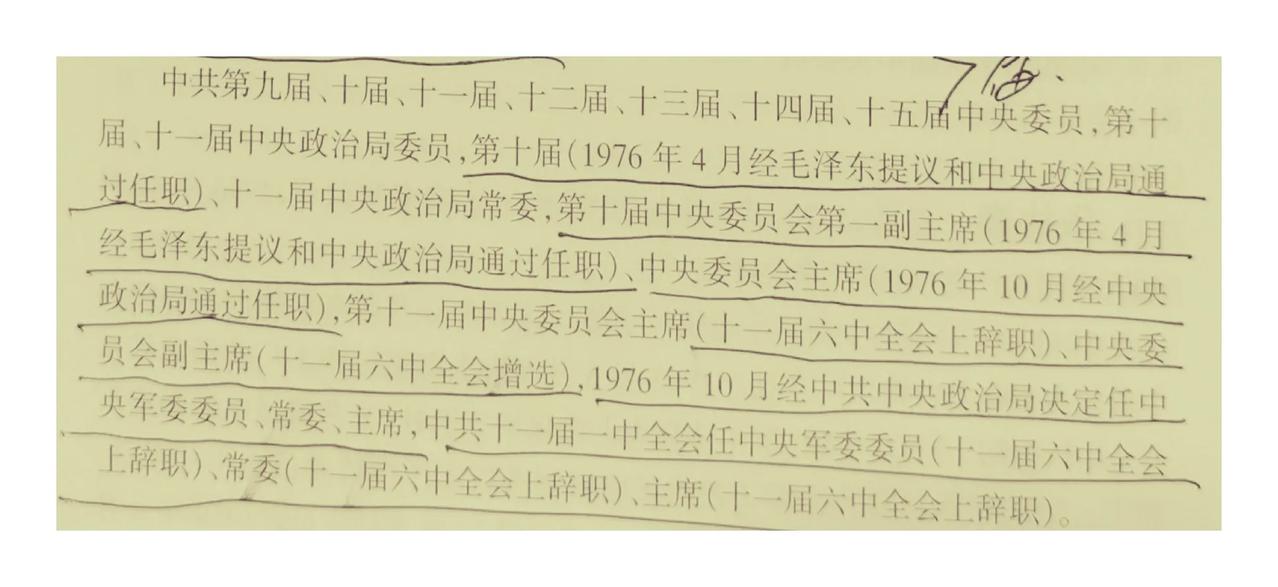 7届.
中共第九届、十届、十一届、十二届、十三届、十四届、十五届中央委员,第十
届、十一届中央政治局委员,第十届(1976年4月经毛泽东提议和中央政治局通
过任职)、十一届中央政治局常委,第十届中央委员会第一副主席(1976年4月
经毛泽东提议和中央政治局通过任职)、中央委员会主席(1976年10月经中央
政治局通过任职),第十一届中央委员会主席(十一届六中全会上辞职)、中央委
员会副主席(十一届六中全会增选),1976年10月经中共中央政治局决定任中
央军委委员、常委、主席,中共十一届一中全会任中央军委委员(十一届六中全会
上辞职)、常委(十一届六中全会上辞职)、主席(十一届六中全会上辞职)。